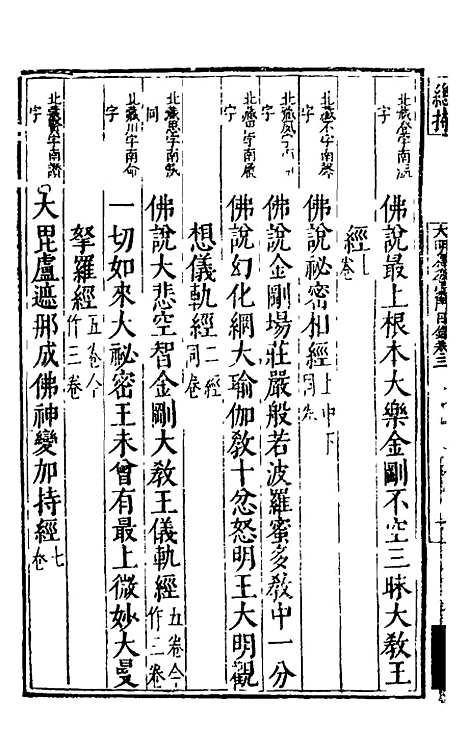 總持
大明
目錄卷三
北藏
字南
佛說最上根本大樂金剛不空三昧大教王
經七卷
北藏不字南
字
佛說祕密相經上中下同卷
北藏
字
佛說金剛場莊嚴般若波羅蜜多教中一分
北藏
字
佛說幻化網大瑜伽教十忿怒明王大明觀
想儀軌經二經同卷
北藏思字南
同
佛說大悲空智金剛大教王儀軌經五卷今作二卷
北藏川字南命
字
一切如來大祕密王未曾有最上微妙大曼
拏羅經五卷今作三卷
北藏
字南
字
大毘盧遮那成佛神變加持經七卷